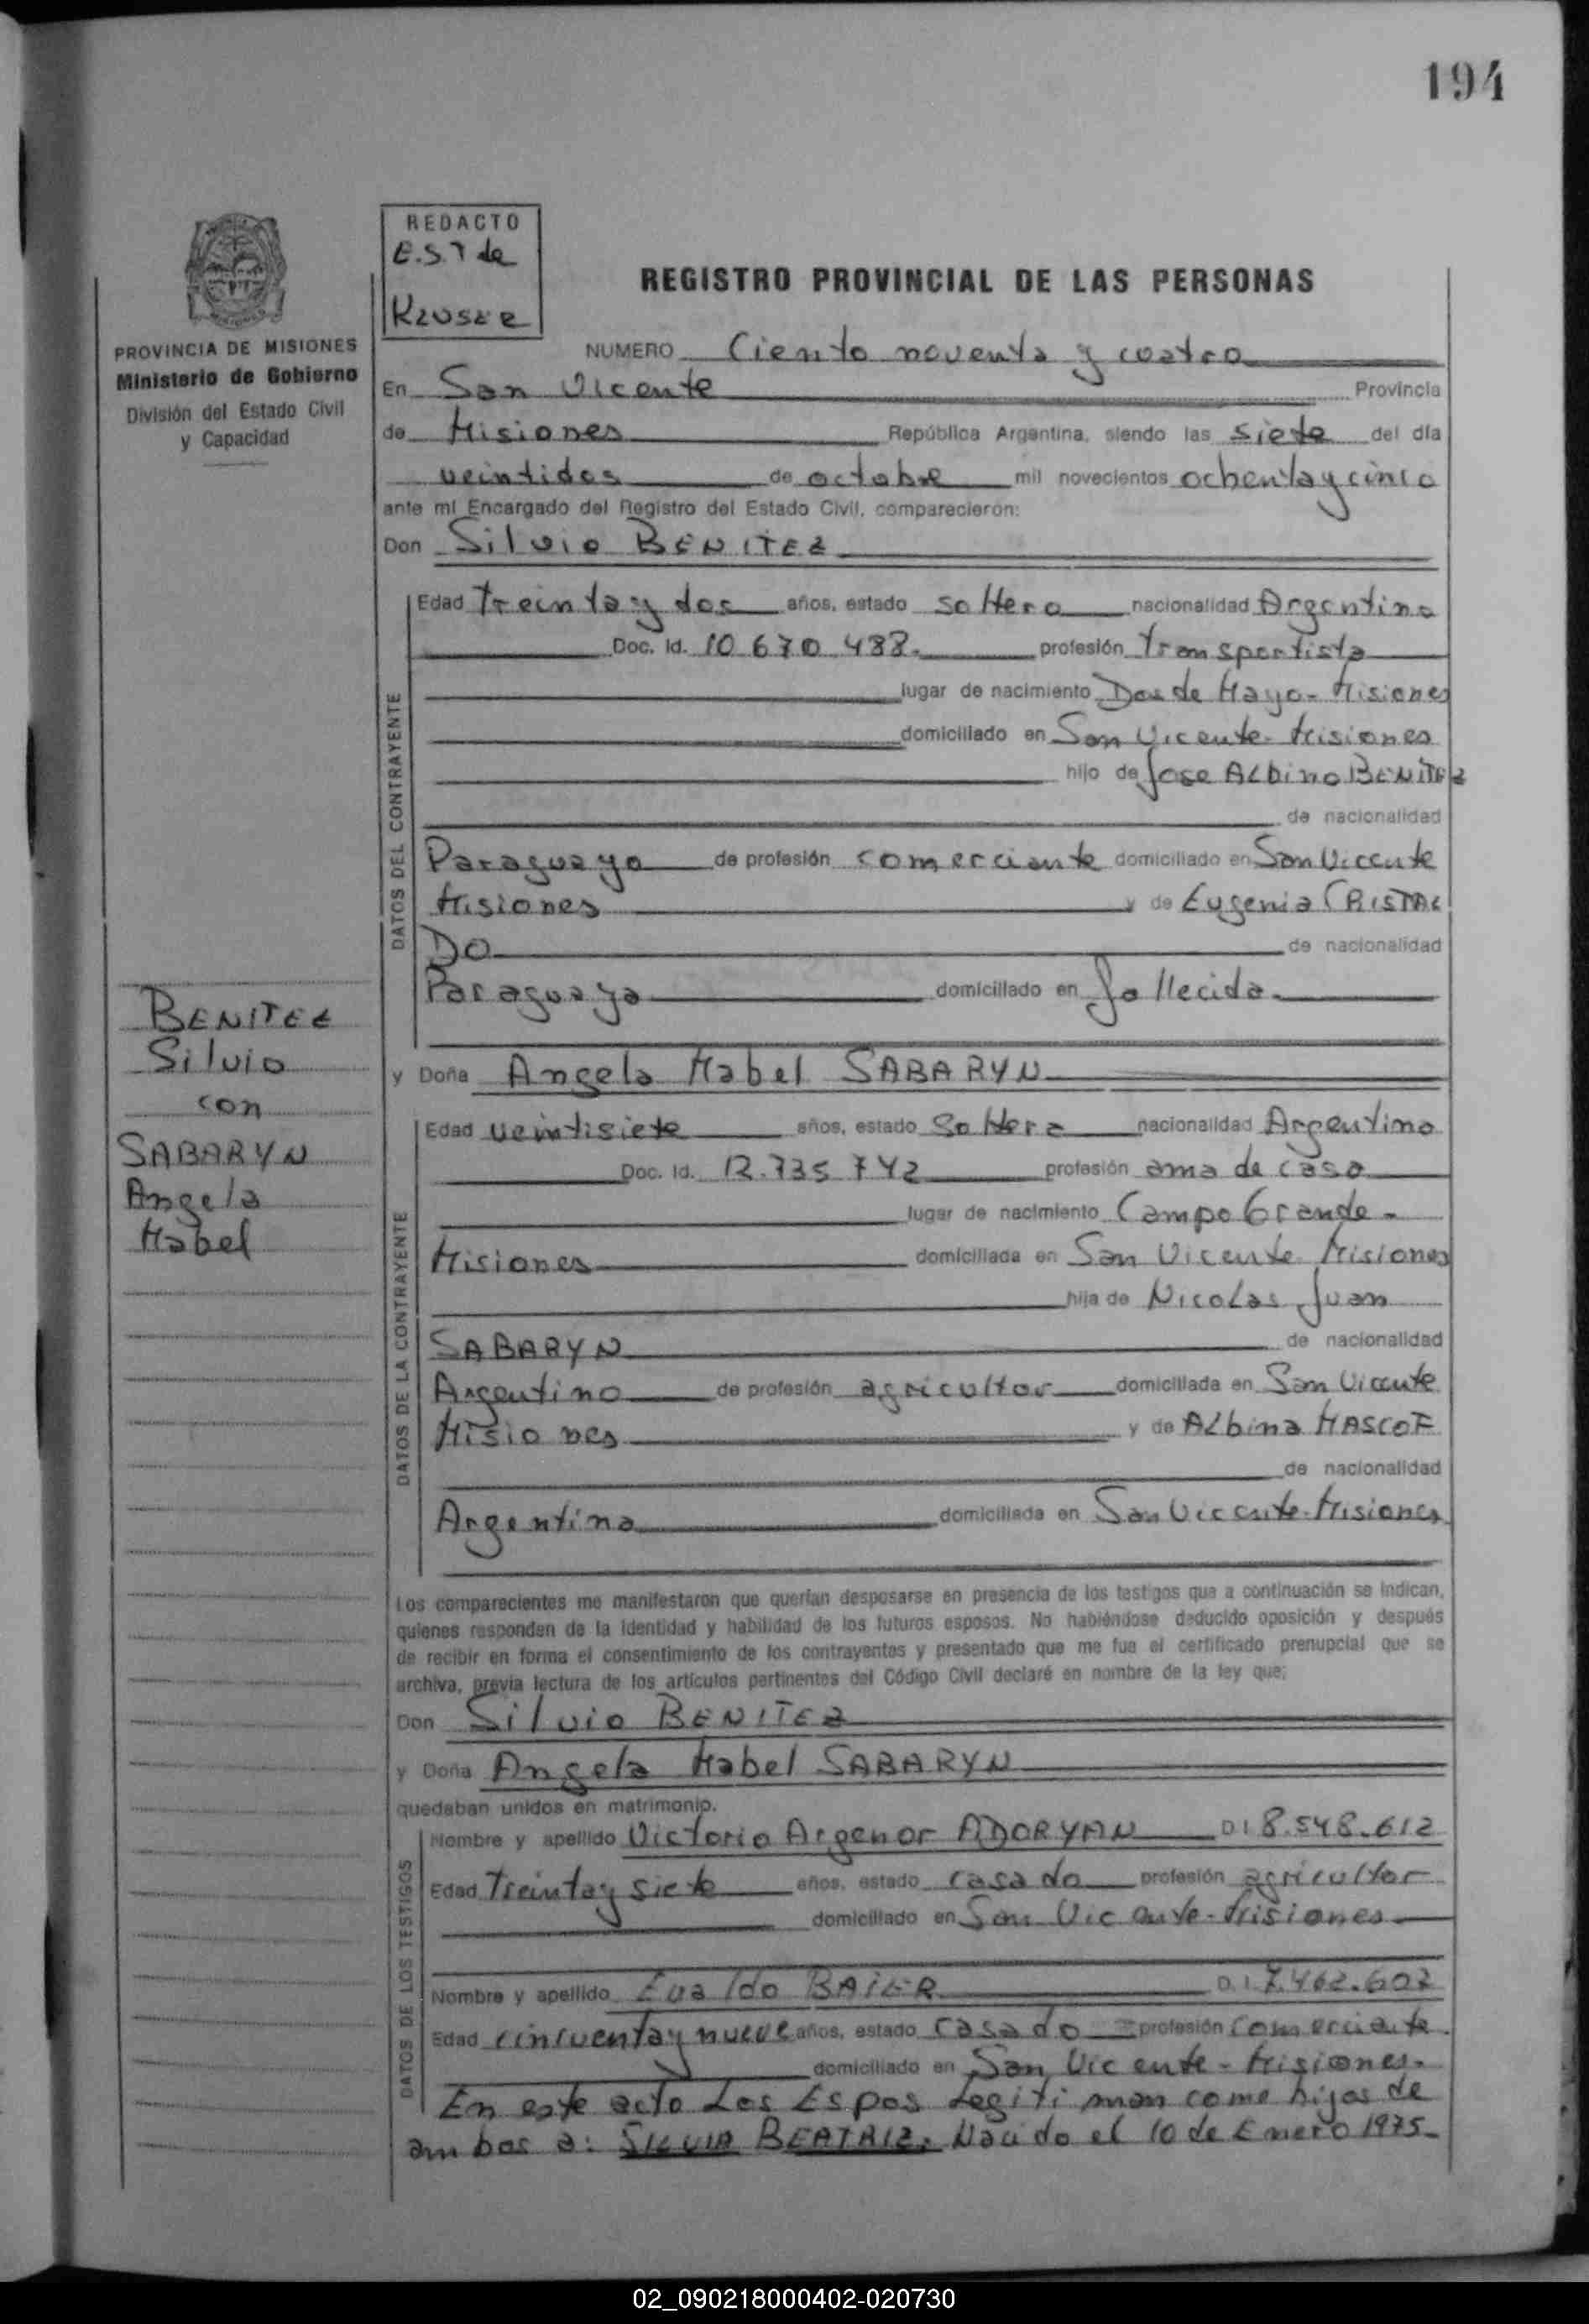 194
REDACTO
E.S.T de
KRUSER
REGISTRO PROVINCIAL DE LAS PERSONAS
PROVINCIA DE MISIONES
Ministerio de Gobierno
División del Estado Civil
y Capacidad
NUMERO Ciento noventa y cuatro
En San Vicente Provincia
de Misiones República Argentina, siendo las siete del día
veintidos de octubre mil novecientos ochenta y cinco
ante mi Encargado del Registro del Estado Civil, comparecieron:
Don Silvio BENITEZ
DATOS DEL CONTRAYENTE
Edad treinta y dos años, estado soltero nacionalidad Argentino
Doc. Id. 10 670 488. profesión transportista
lugar de nacimiento Dos de Mayo - Misiones
domiciliado en San Vicente - Misiones
hijo de Jose ALbino BENITEZ
de nacionalidad
Paraguayo de profesión comerciante domiciliado en San Vicente
Misiones y de Eugenia CRISTAL
DO de nacionalidad
Paraguaya domiciliado en fallecida
BENITEZ
Silvio
con
SABARYN
Angela
Mabel
y Doña Angela Mabel SABARYN
DATOS DE LA CONTRAYENTE
Edad veintisiete años, estado Soltera nacionalidad Argentina
Doc. Id. 12.735 742 profesión ama de casa
lugar de nacimiento Campo Grande -
Misiones domiciliada en San Vicente Misiones
hija de Nicolas Juan
SABARYN de nacionalidad
Argentino de profesión agricultor domiciliada en San Vicente
Misiones y de ALbina MASCOF
de nacionalidad
Argentina domiciliada en San Vicente - Misiones
Los comparecientes me manifestaron que querían desposarse en presencia de los testigos que a continuación se indican,
quienes responden de la identidad y habilidad de los futuros esposos. No habiéndose deducido oposición y después
de recibir en forma el consentimiento de los contrayentes y presentado que me fue el certificado prenupcial que se
archiva, previa lectura de los artículos pertinentes del Código Civil declaré en nombre de la ley que;
Don Silvio BENITEZ
y Doña Angela Mabel SABARYN
quedaban unidos en matrimonio.
DATOS DE LOS TESTIGOS
Nombre y apellido Victorio Argenor ADORYAN D I 8.548.612
Edad Treinta y siete años, estado casado profesión agricultor
domiciliado en San Vicente - Misiones
Nombre y apellido Evaldo BAIER D.I. 7.462.607
Edad cincuenta y nueve años, estado casado profesión comerciante
domiciliado en San Vicente - Misiones.
En este acto Los Espos Legitiman como hijos de
ambos a: SILVIA BEATRIZ. Nacido el 10 de Enero 1975-
02_090218000402-020730